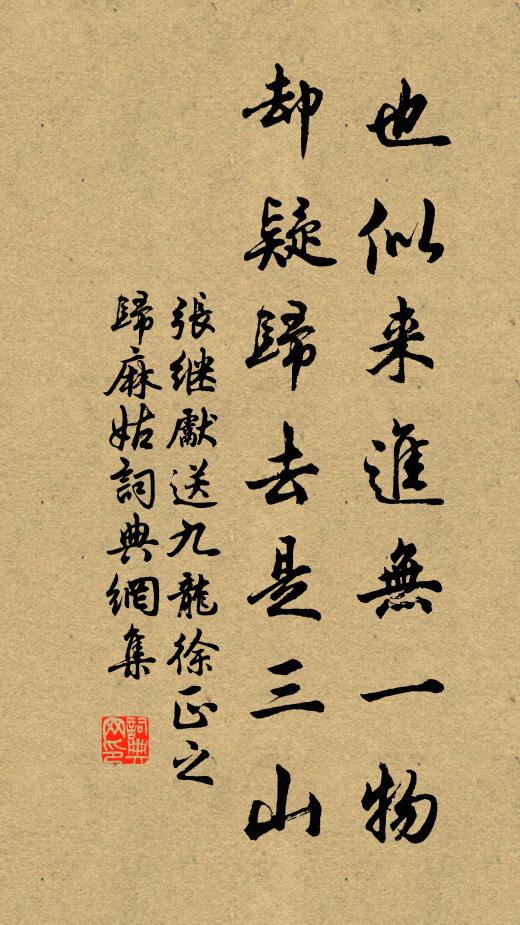 也似来進無一物
却疑歸去是三山
張继獻送九龍徐正之
歸麻姑詞典網集
詞典网印